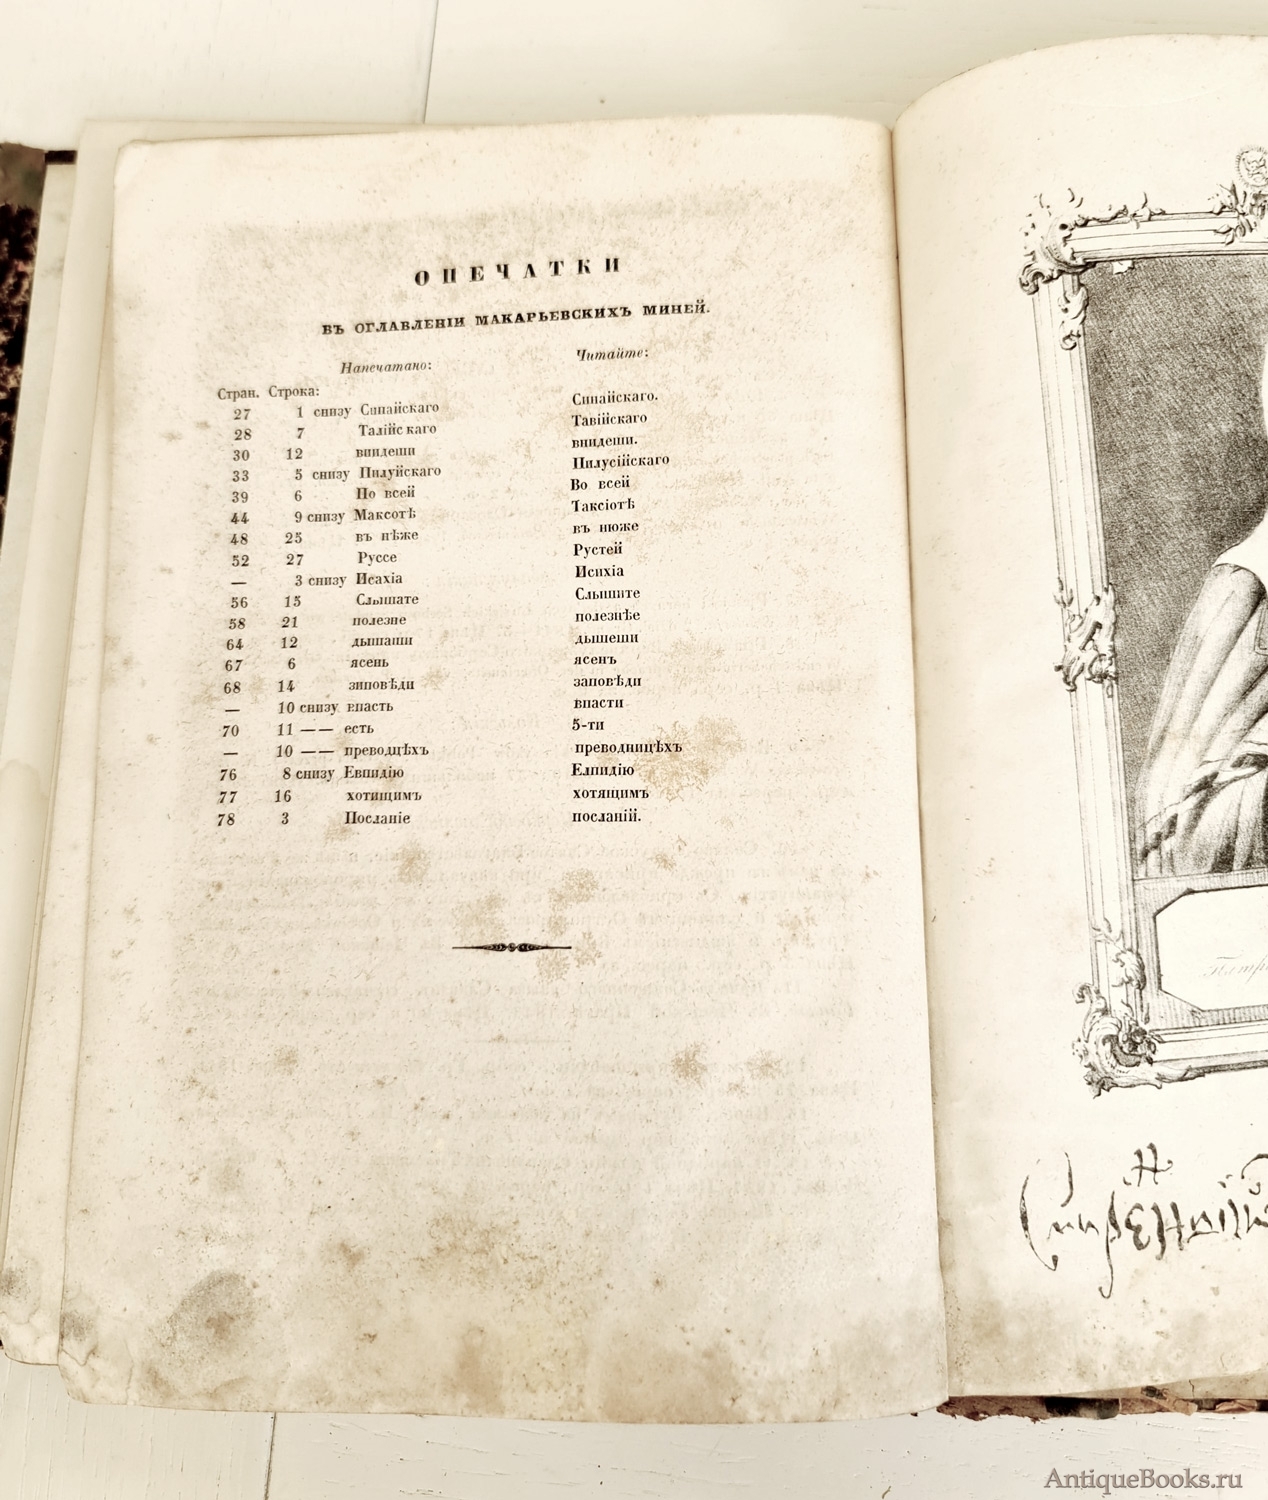 ОПЕЧАТКИ
ВЪ ОГЛАВЛЕНІИ МАКАРЬЕВСКИХЪ МИНЕЙ.
Напечатано: Читайте:
Стран. Строка:
27 1 снизу Синайскаго Синайскаго.
28 7 Талійс каго Тавійскаго
30 12 внидеши внидеши.
33 5 снизу Пилуйскаго Пилусійскаго
39 6 По всей Во всей
44 9 снизу Максотѣ Таксіотѣ
48 25 въ нѣже въ нюже
52 27 Руссе Рустей
— 3 снизу Исахіа Исихіа
56 15 Слышате Слышите
58 21 полезне полезнѣе
64 12 дышаши дышеши
67 6 ясень ясенъ
68 14 зиповѣди заповѣди
— 10 снизу впасть впасти
70 11 — — есть 5-ти
— 10 — — преводцѣхъ преводницѣхъ
76 8 снизу Евпидію Елпидію
77 16 хотищимъ хотящимъ
78 3 Посланіе посланій.
AntiqueBooks.ru